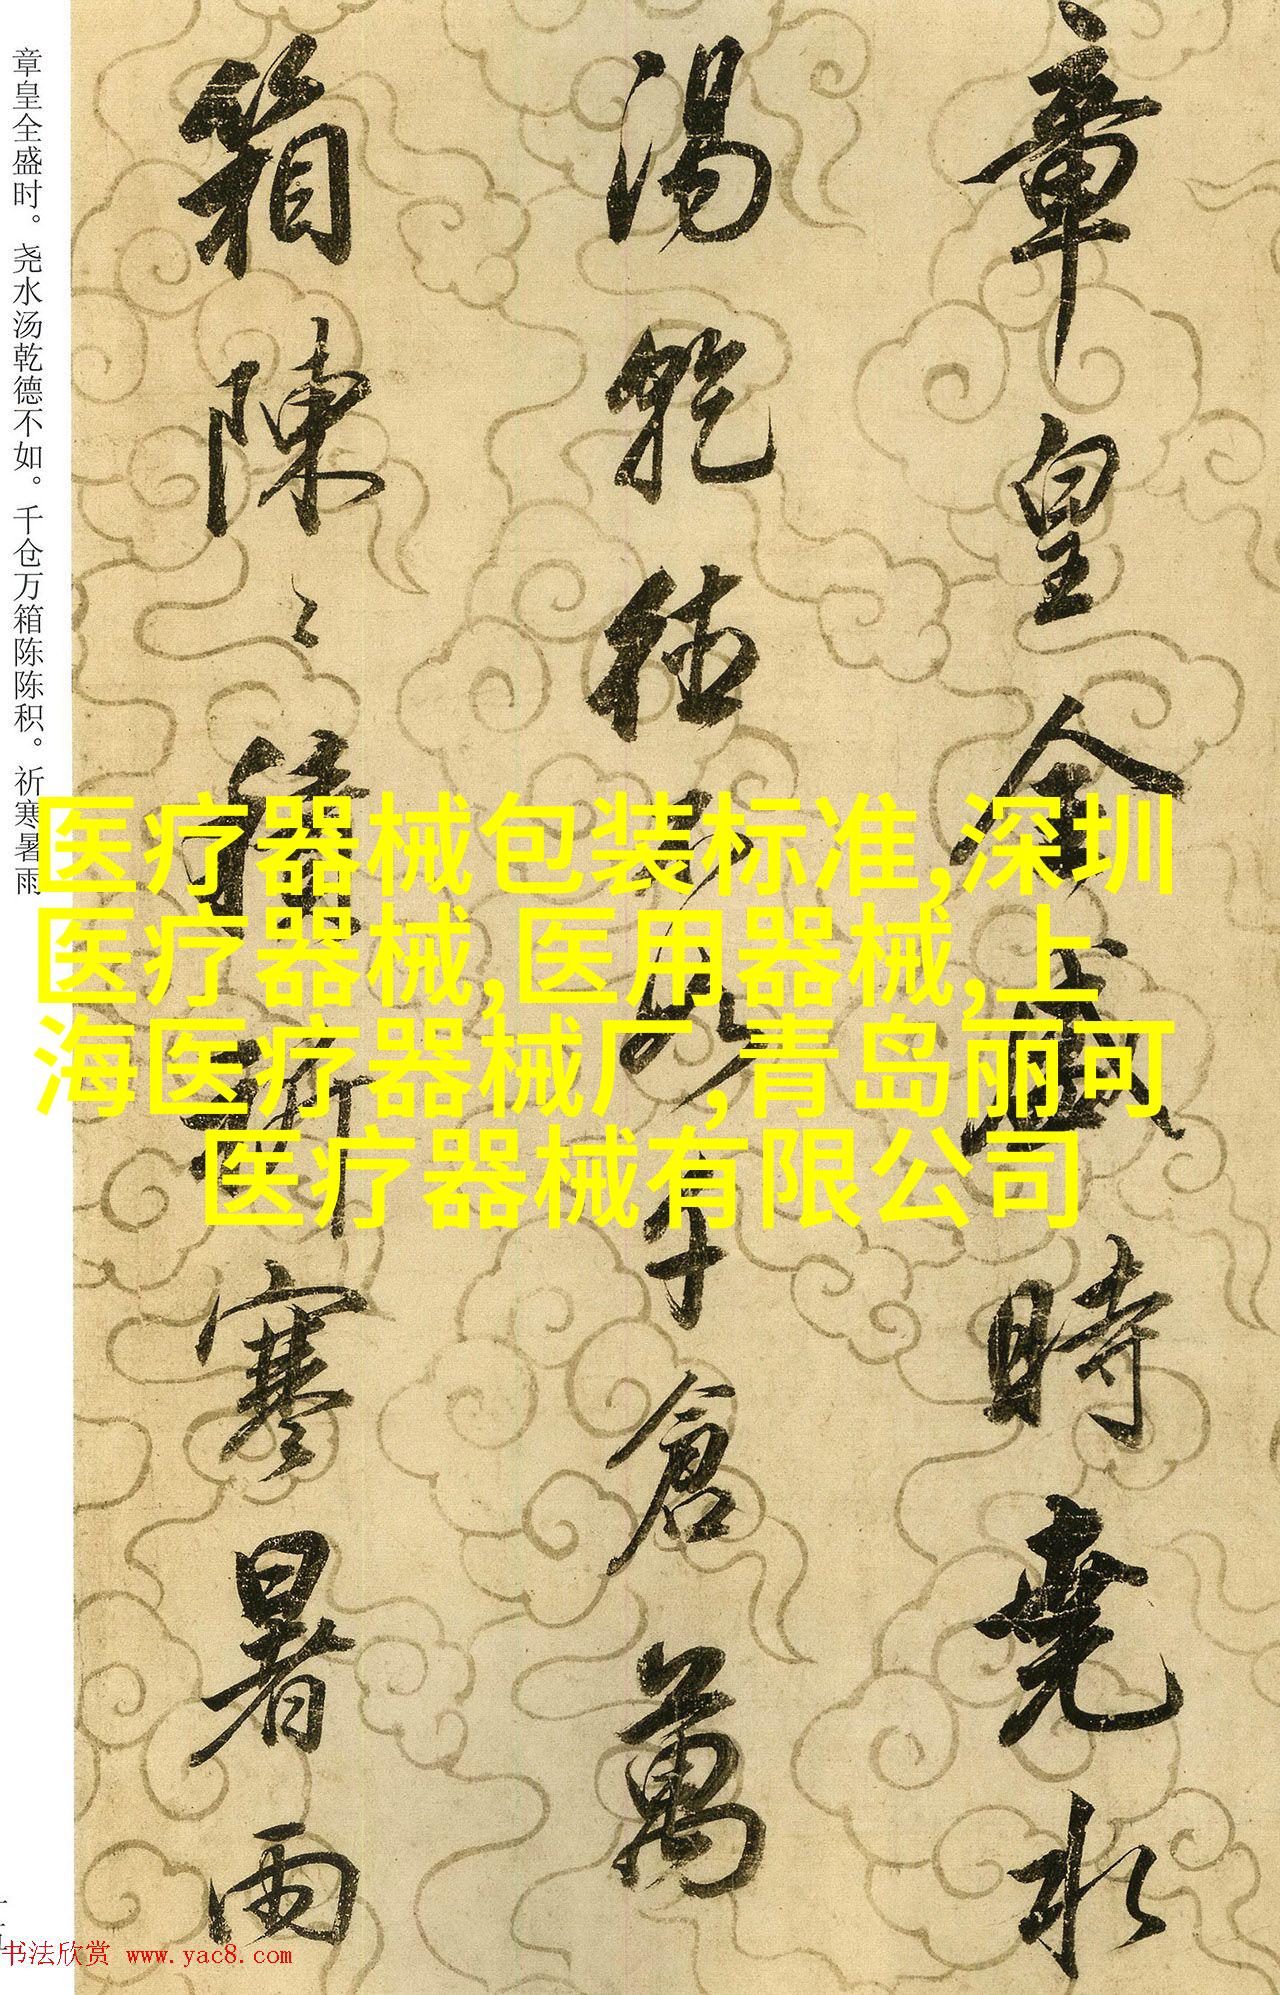 章皇全盛時堯水
湯乾德不如千倉萬
箱陳〻積祈寒暑雨
章皇全盛时。尧水汤乾德不如。千仓万箱陈陈积。祈寒暑雨
医疗器械包装标准,深圳
医疗器械,医用器械,上
海医疗器械厂,青岛丽可
医疗器械有限公司
书法欣赏 www.yac8.com